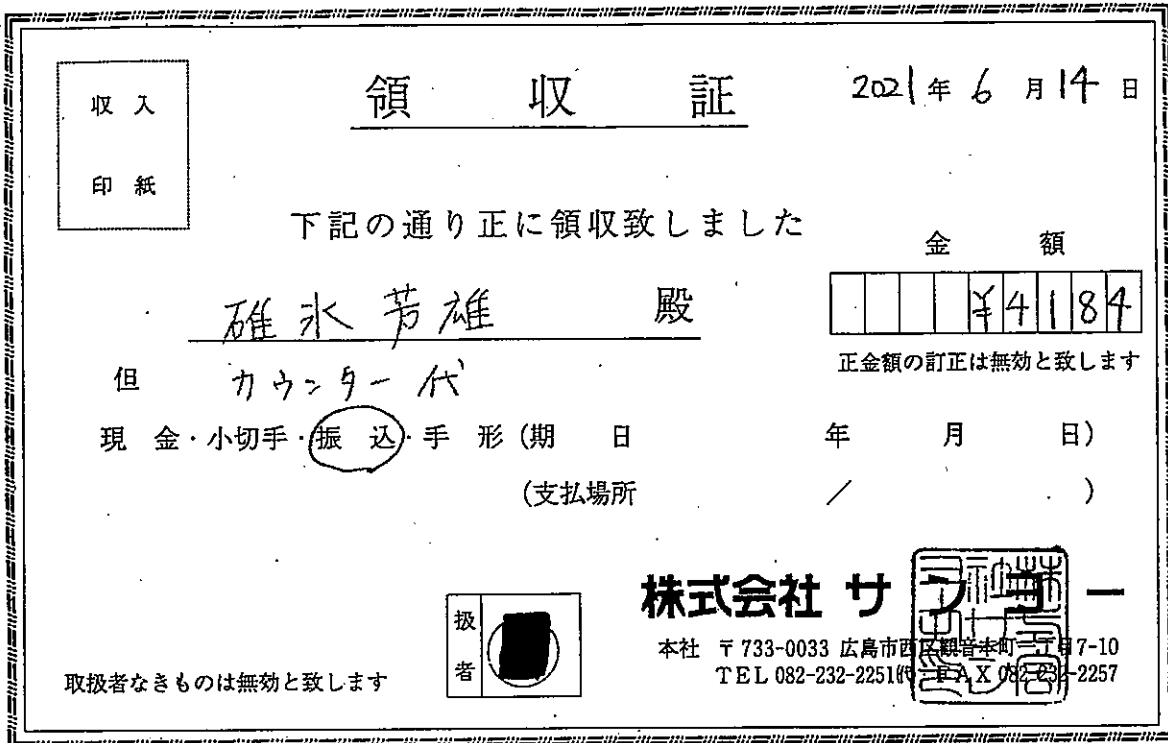 収入
印紙
領収証
2021年6月14日
下記の通り正に領収致しました
金額
碓氷芳雄 殿
¥4184
正金額の訂正は無効と致します
但 カウンター代
現金・小切手・振込・手形(期日 年 月 日)
(支払場所 / )
株式会社サンヨー
扱者
本社 〒733-0033 広島市西区観音本町二丁目7-10
TEL 082-232-2251代・FAX 082-232-2257
取扱者なきものは無効と致します